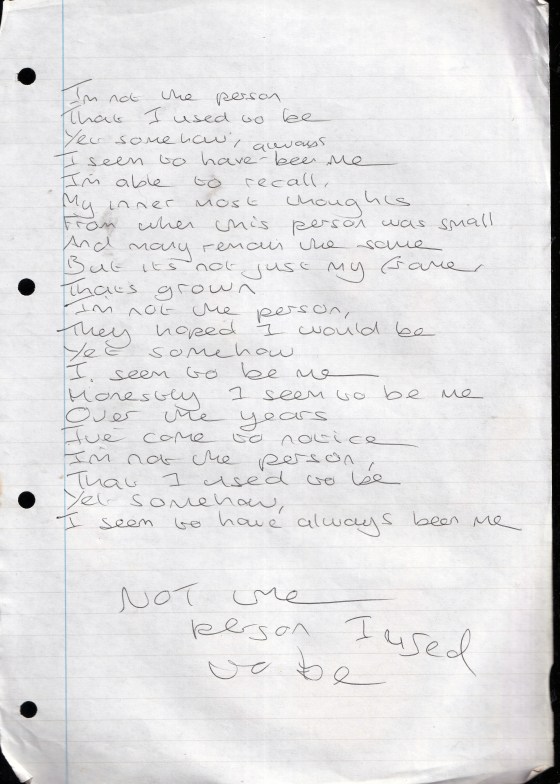 I'm not the person
That I used to be
Yet somehow, always
I seem to have been me
I'm able to recall,
My inner most thoughts
From when this person was small
And many remain the same
But it's not just my frame,
Thats grown
I'm not the person,
They hoped I would be
Yet somehow
I seem to be me
Honestly I seem to be me
Over the years
I've come to notice
I'm not the person,
That I used to be
Yet somehow,
I seem to have always been me
NOT the
person I used
to be